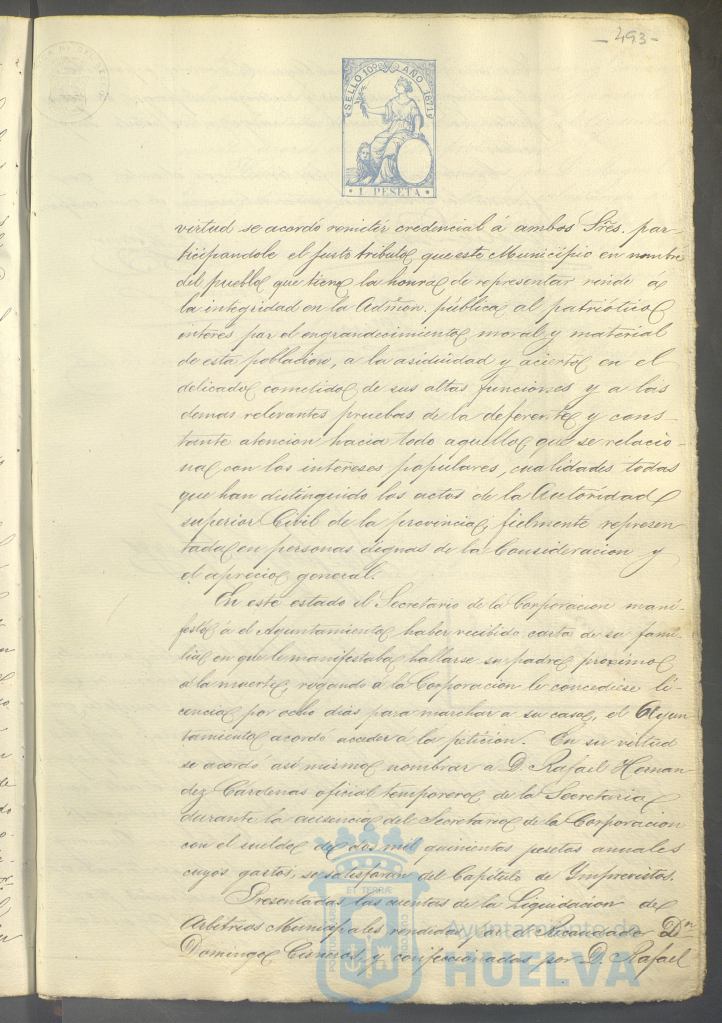 - 493 -
SELLO 10º AÑO 1871
1 PESETA
virtud se acordó remitir credencial á ambos Sres. par-
ticipandole el justo tributo, que este Municipio en nombre
del pueblo que tiene la honra de representar rinde á
la integridad en la Admon. pública; al patriótico
interes por el engrandecimiento moral y material
de esta poblacion, a la asiduidad y acierto en el
delicado cometido de sus altas funciones y a las
demas relevantes pruebas de la deferente y cons-
tante atencion hacia todo aquello que se relacio-
na con los intereses populares, cualidades todas
que han distinguido los actos de la Autoridad
superior Civil de la provincia; fielmente represen-
tada en personas dignas de la Consideracion y
el aprecio general.
En este estado el Secretario de la Corporacion mani-
festó á el Ayuntamiento haber recibido carta de su fami-
lia en que le manifestaba hallarse su padre proximo
á la muerte, rogando á la Corporacion le concediese li-
cencia por ocho dias para marchar a su casa, el Ayun-
tamiento acordó acceder á la peticion. En su virtud
se acordó asi mismo nombrar a D. Rafael Hernan
dez Cárdenas oficial temporero de la Secretaria
durante la ausencia del Secretario de la Corporacion
con el sueldo de dos mil quinientas pesetas anuales
cuyos gastos, se satisfarán del Capitulo de Ymprevistos.
Presentadas las cuentas de la Liquidacion de
Arbitrios Municipales rendidas por el Recaudador Dn
Domingo Cisneros, y confeccionadas por D. Rafael
Ayuntamiento de
HUELVA